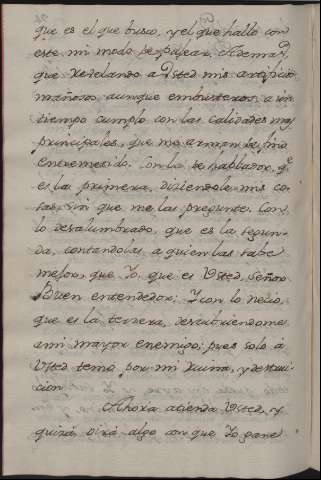 que es el que busco, y el que hallo con
este mi modo de pasear. Ademas,
que revelando a Usted mis artificios
mañosos, aunque embusteros, a un
tiempo cumplo con las calidades mas
principales, que me arman de fino
entremetido. Con la de hablador, q.e
es la primera, diziendole mis co-
sas, sin que me las pregunte. Con
lo deslumbrado, que es la segun-
da, contandolas a quien las sabe
mejor, que Yo, que es Usted, Señor
Buen entendedor: Y con lo necio,
que es la tercera, descubriendome
a mi mayor enemigo: pues solo á
Usted temo por mi Ruina, y destruc-
cion.
Ahora atienda Usted, y
quizá oirá algo con que Yo gane